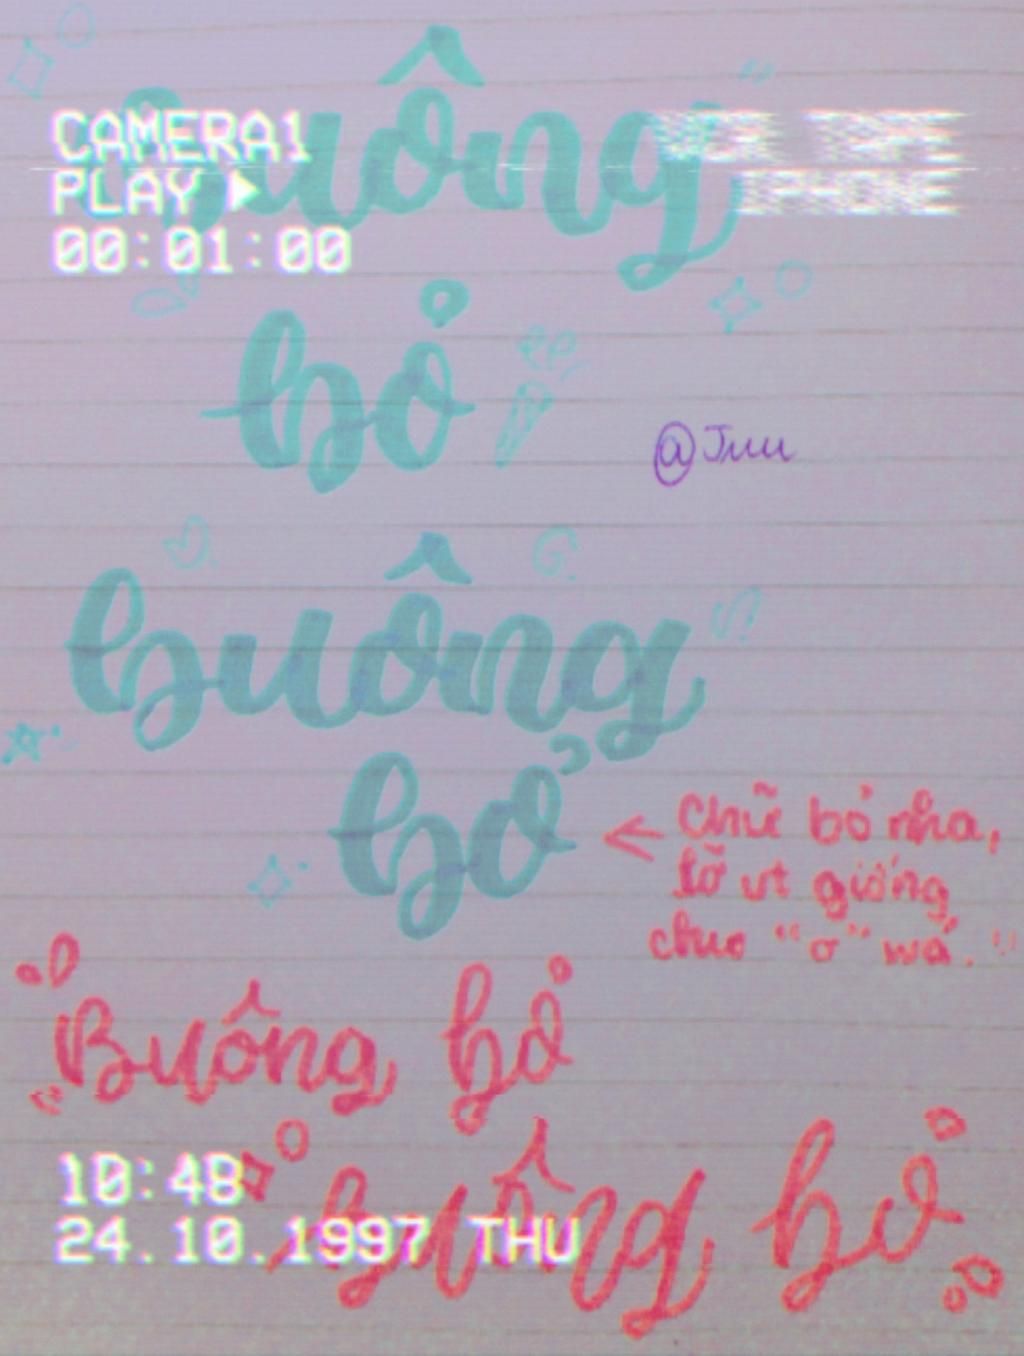 CAMERA1
PLAY
00:01:00
IPHONE
buông
bỏ
@Juu
buông
bỏ
Chữ bỏ nha,
lỡ vt giống
chữ "ơ" wá.
Buông bỏ
buông bỏ
10:48
24.10.1997 THU